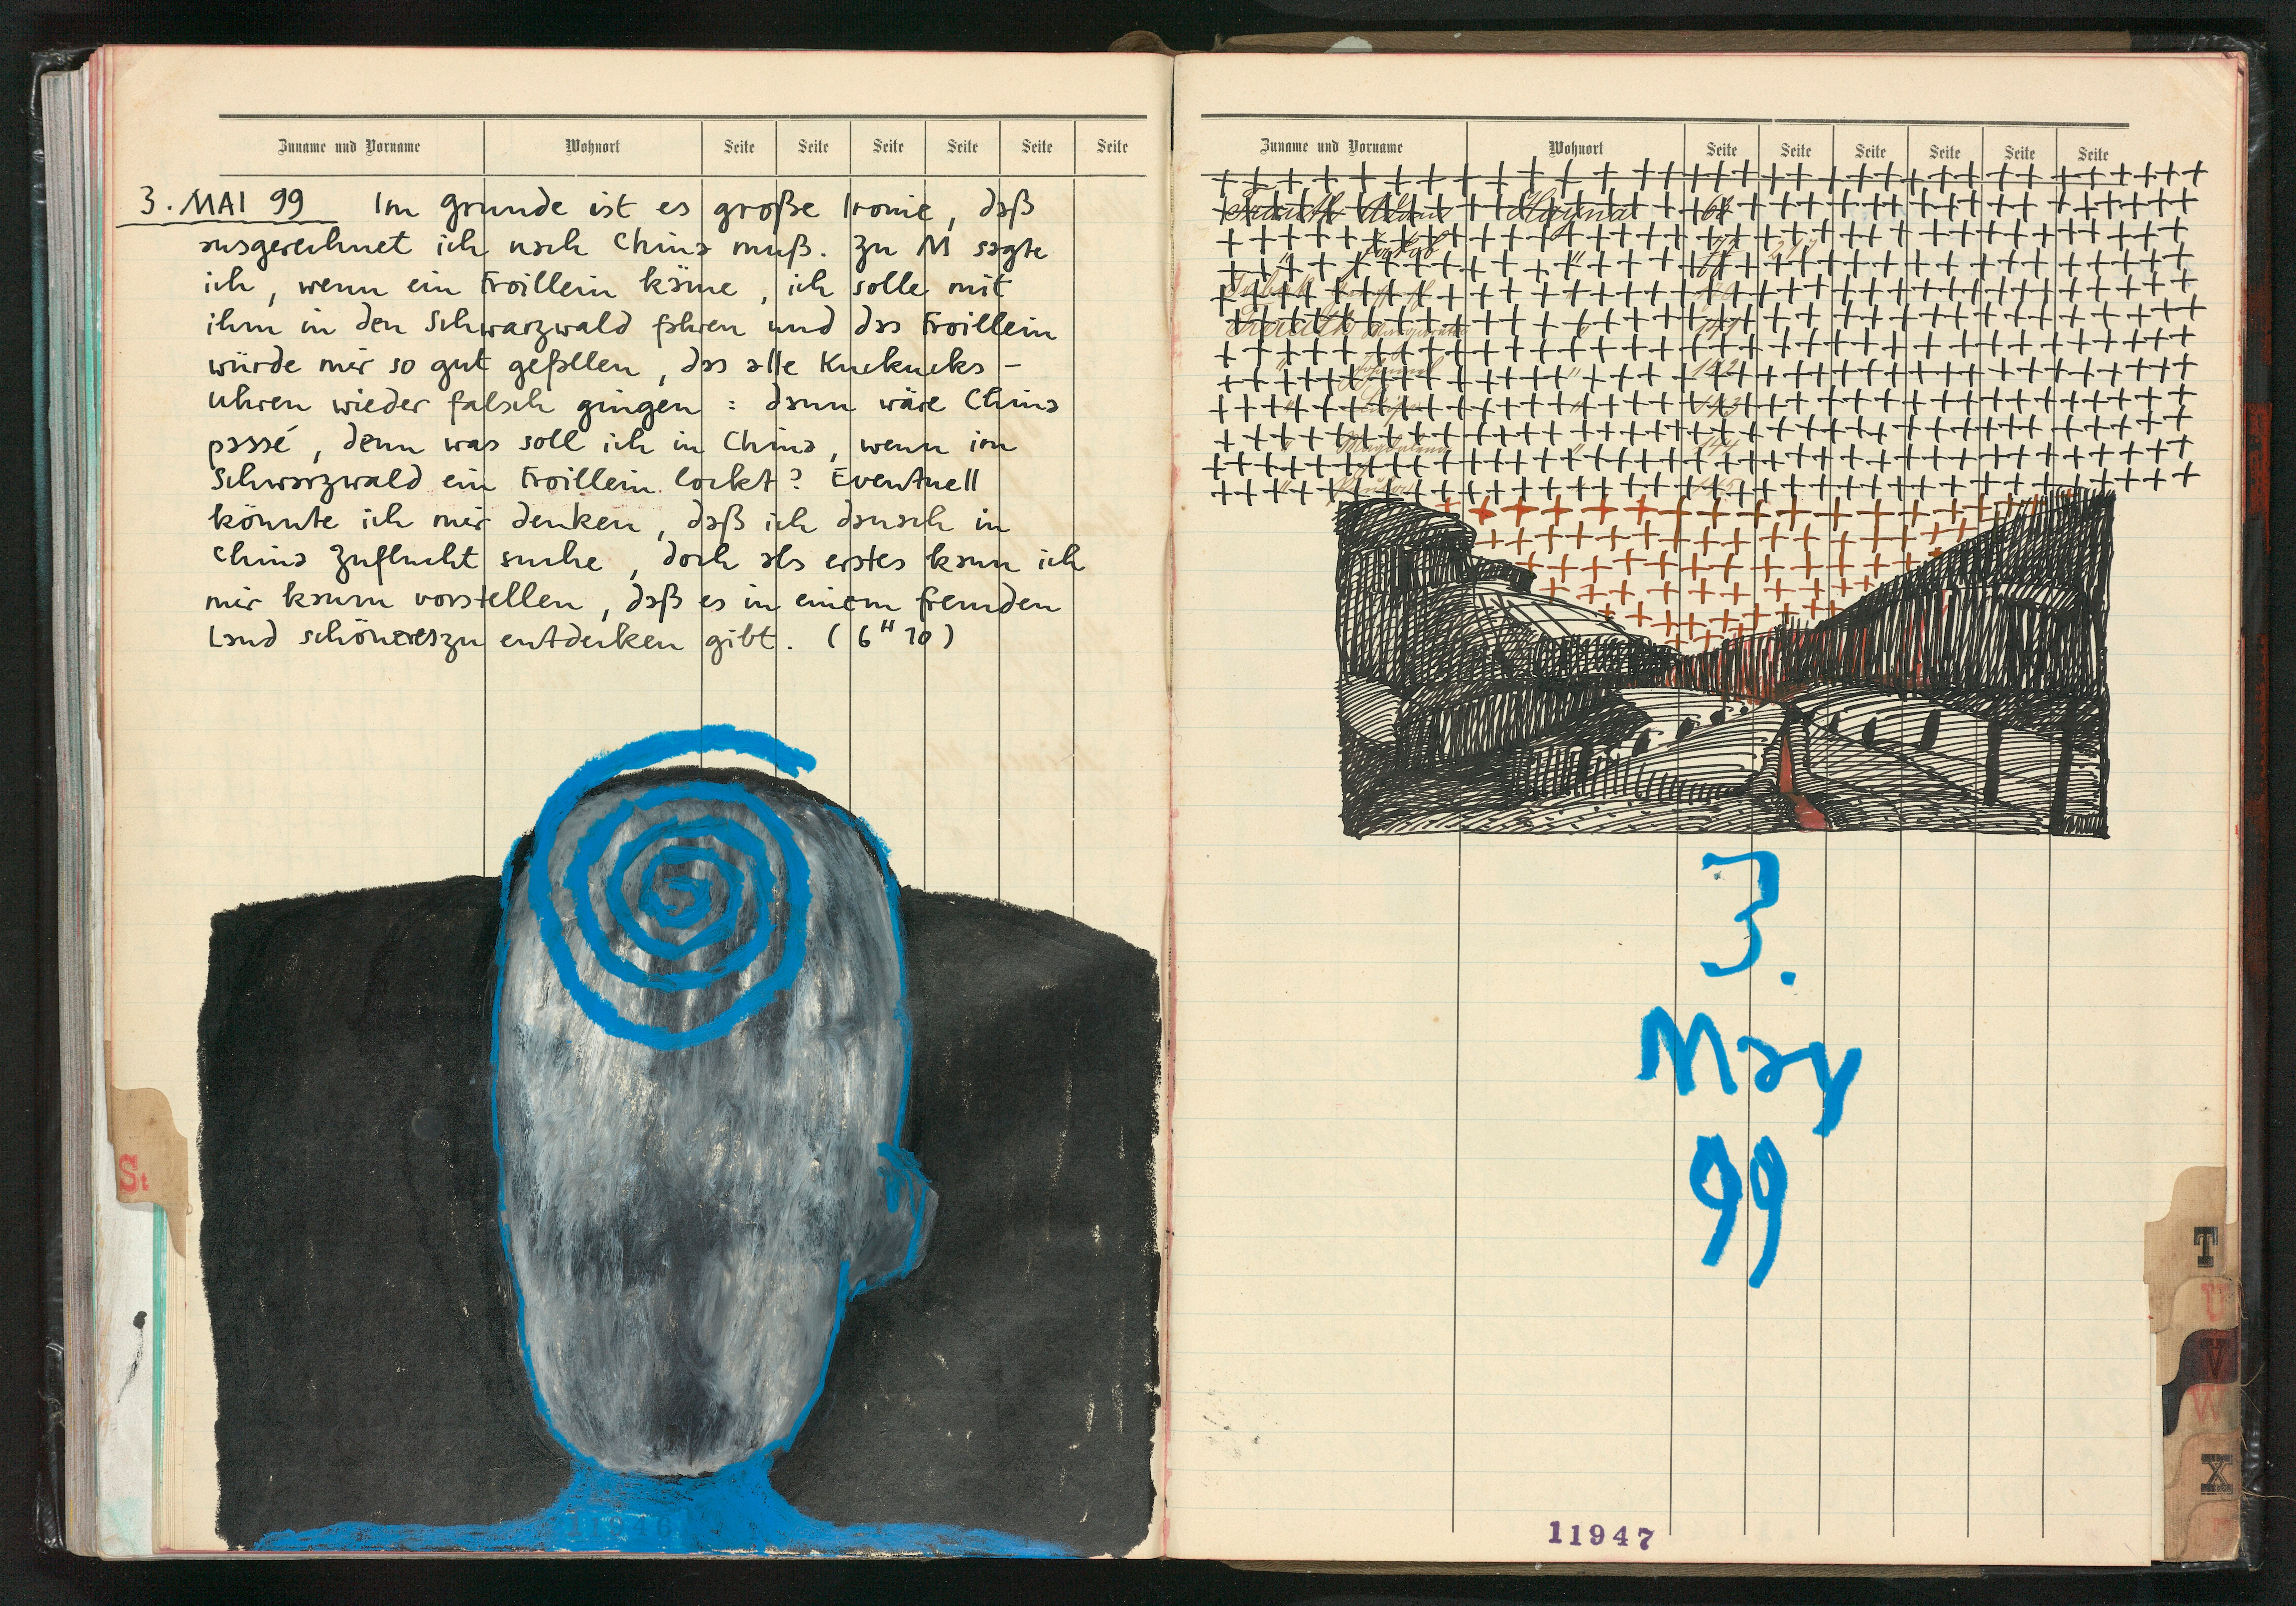 Zuname und Vorname Wohnort Seite Seite Seite Seite Seite Seite
3. MAI 99 Im grunde ist es große Ironie, daß
ausgerechnet ich nach China muß. Zu M sagte
ich, wenn ein Froillein käme, ich solle mit
ihm in den Schwarzwald fahren und das Froillein
würde mir so gut gefallen, das alle Kuckucks-
Uhren wieder falsch gingen: dann wäre China
passé, denn was soll ich in China, wenn im
Schwarzwald ein Froillein lockt? Eventuell
könnte ich mir denken, daß ich danach in
China Zuflucht suche, doch als erstes kann ich
mir kaum vorstellen, daß es in einem fremden
Land schöneres zu entdecken gibt. (6 H 10)
11946
St
Zuname und Vorname Wohnort Seite Seite Seite Seite Seite Seite
Jakob
142
143
144
145
3.
May
99
11947
T
U
V
W
X